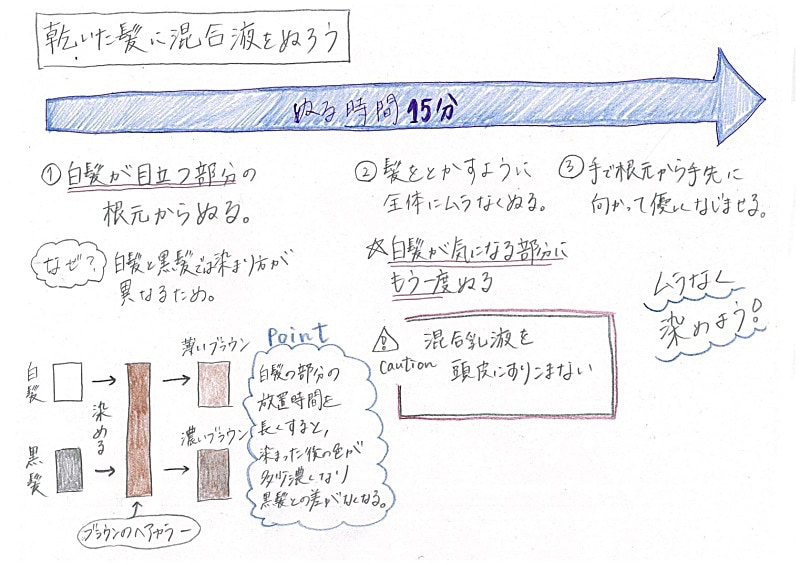 乾いた髪に混合液をぬろう
ぬる時間 15分
① 白髪が目立つ部分の
根元からぬる。
なぜ?
白髪と黒髪では染まり方が
異なるため。
② 髪をとかすように
全体にムラなくぬる。
☆白髪が気になる部分に
もう一度ぬる
③ 手で根元から手先に
向かって優しくなじませる。
ムラなく
染めよう!
caution
混合乳液を
頭皮にすりこまない
白髪
黒髪
染める
薄いブラウン
濃いブラウン
ブラウンのヘアカラー
Point
白髪の部分の
放置時間を
長くすると,
染まった後の色が
多少濃くなり
黒髪との差がなくなる。